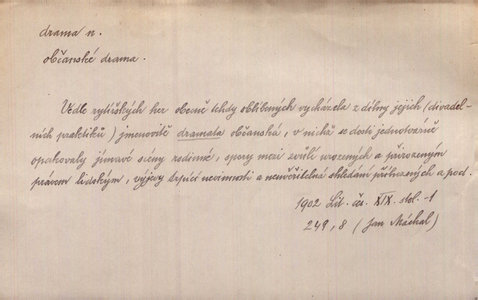 drama n.
občanské drama.
Vedle rytířských her obecně tehdy oblíbených vycházela z dílny jejich (divadel-
ních praktiků) jmenovitě dramata občanská, v nichž se dosti jednotvárně
opakovaly jímavé scény rodinné, spory mezi zvůlí urozených a přirozeným
právem lidským, výjevy trpící nevinnosti a neuvěřitelná shledání příbuzných a pod.
1902 Lit. čes. XIX. stol. -1
249, 8 (Jan Máchal)